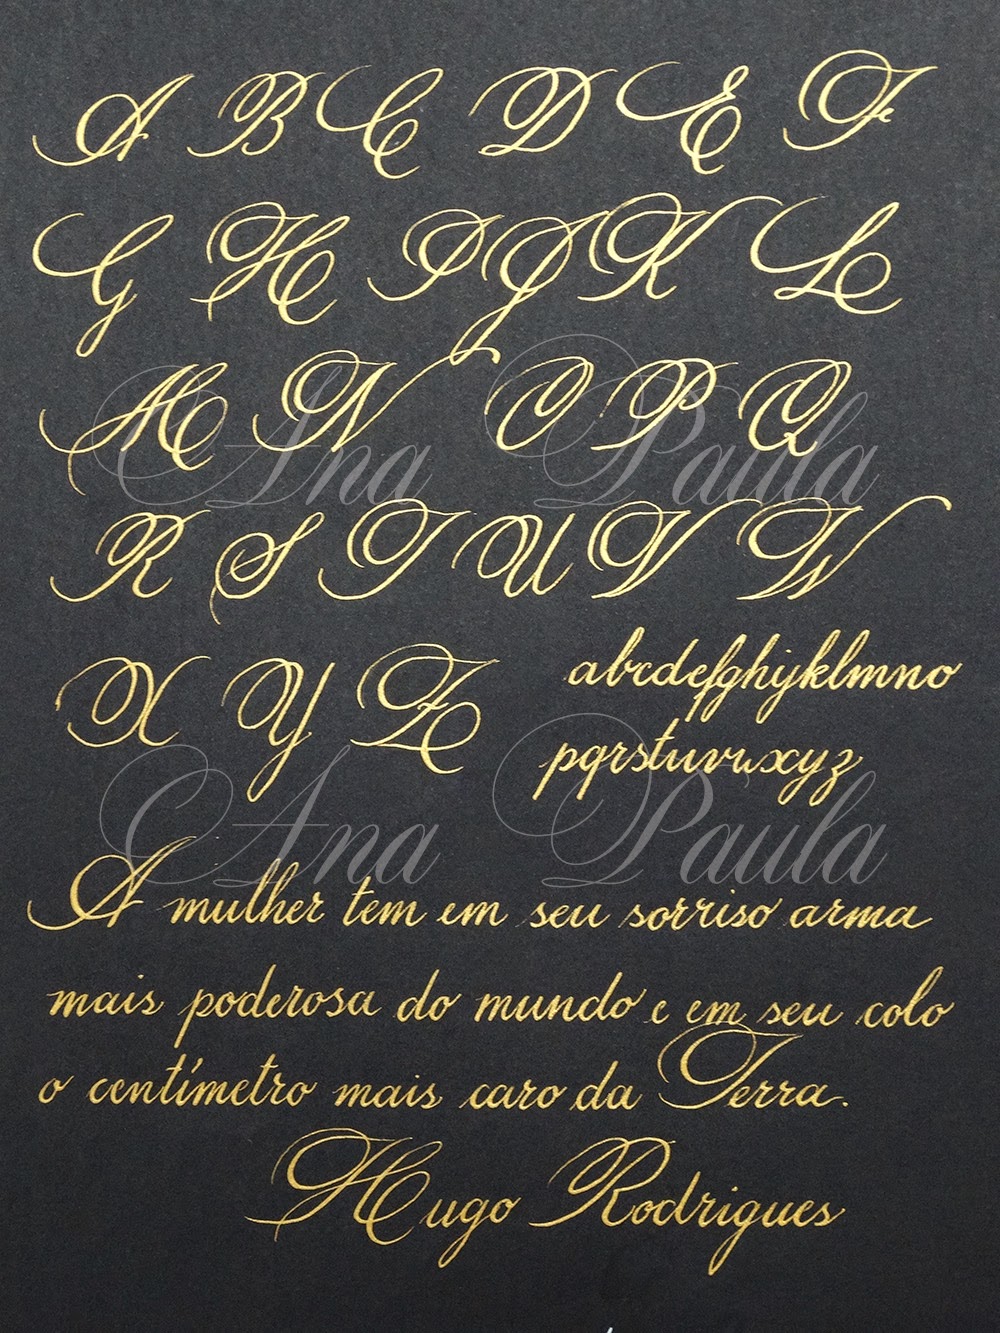 A B C D E F
G H I J K L
M N O P Q
Ana Paula
R S T U V W
X Y Z
abcdefghijklmno
pqrstuvwxyz
Ana Paula
A mulher tem em seu sorriso arma
mais poderosa do mundo e em seu colo
o centímetro mais caro da Terra.
Hugo Rodrigues